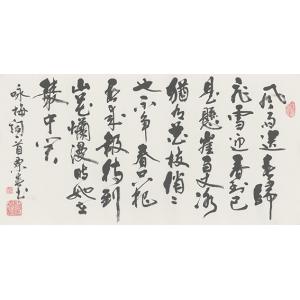 風雨送春歸
飛雪迎春到已
是懸崖百丈冰
猶有花枝俏〻
也不爭春只把
春來報待到
山花爛漫時她在
叢中笑
咏梅詞一首